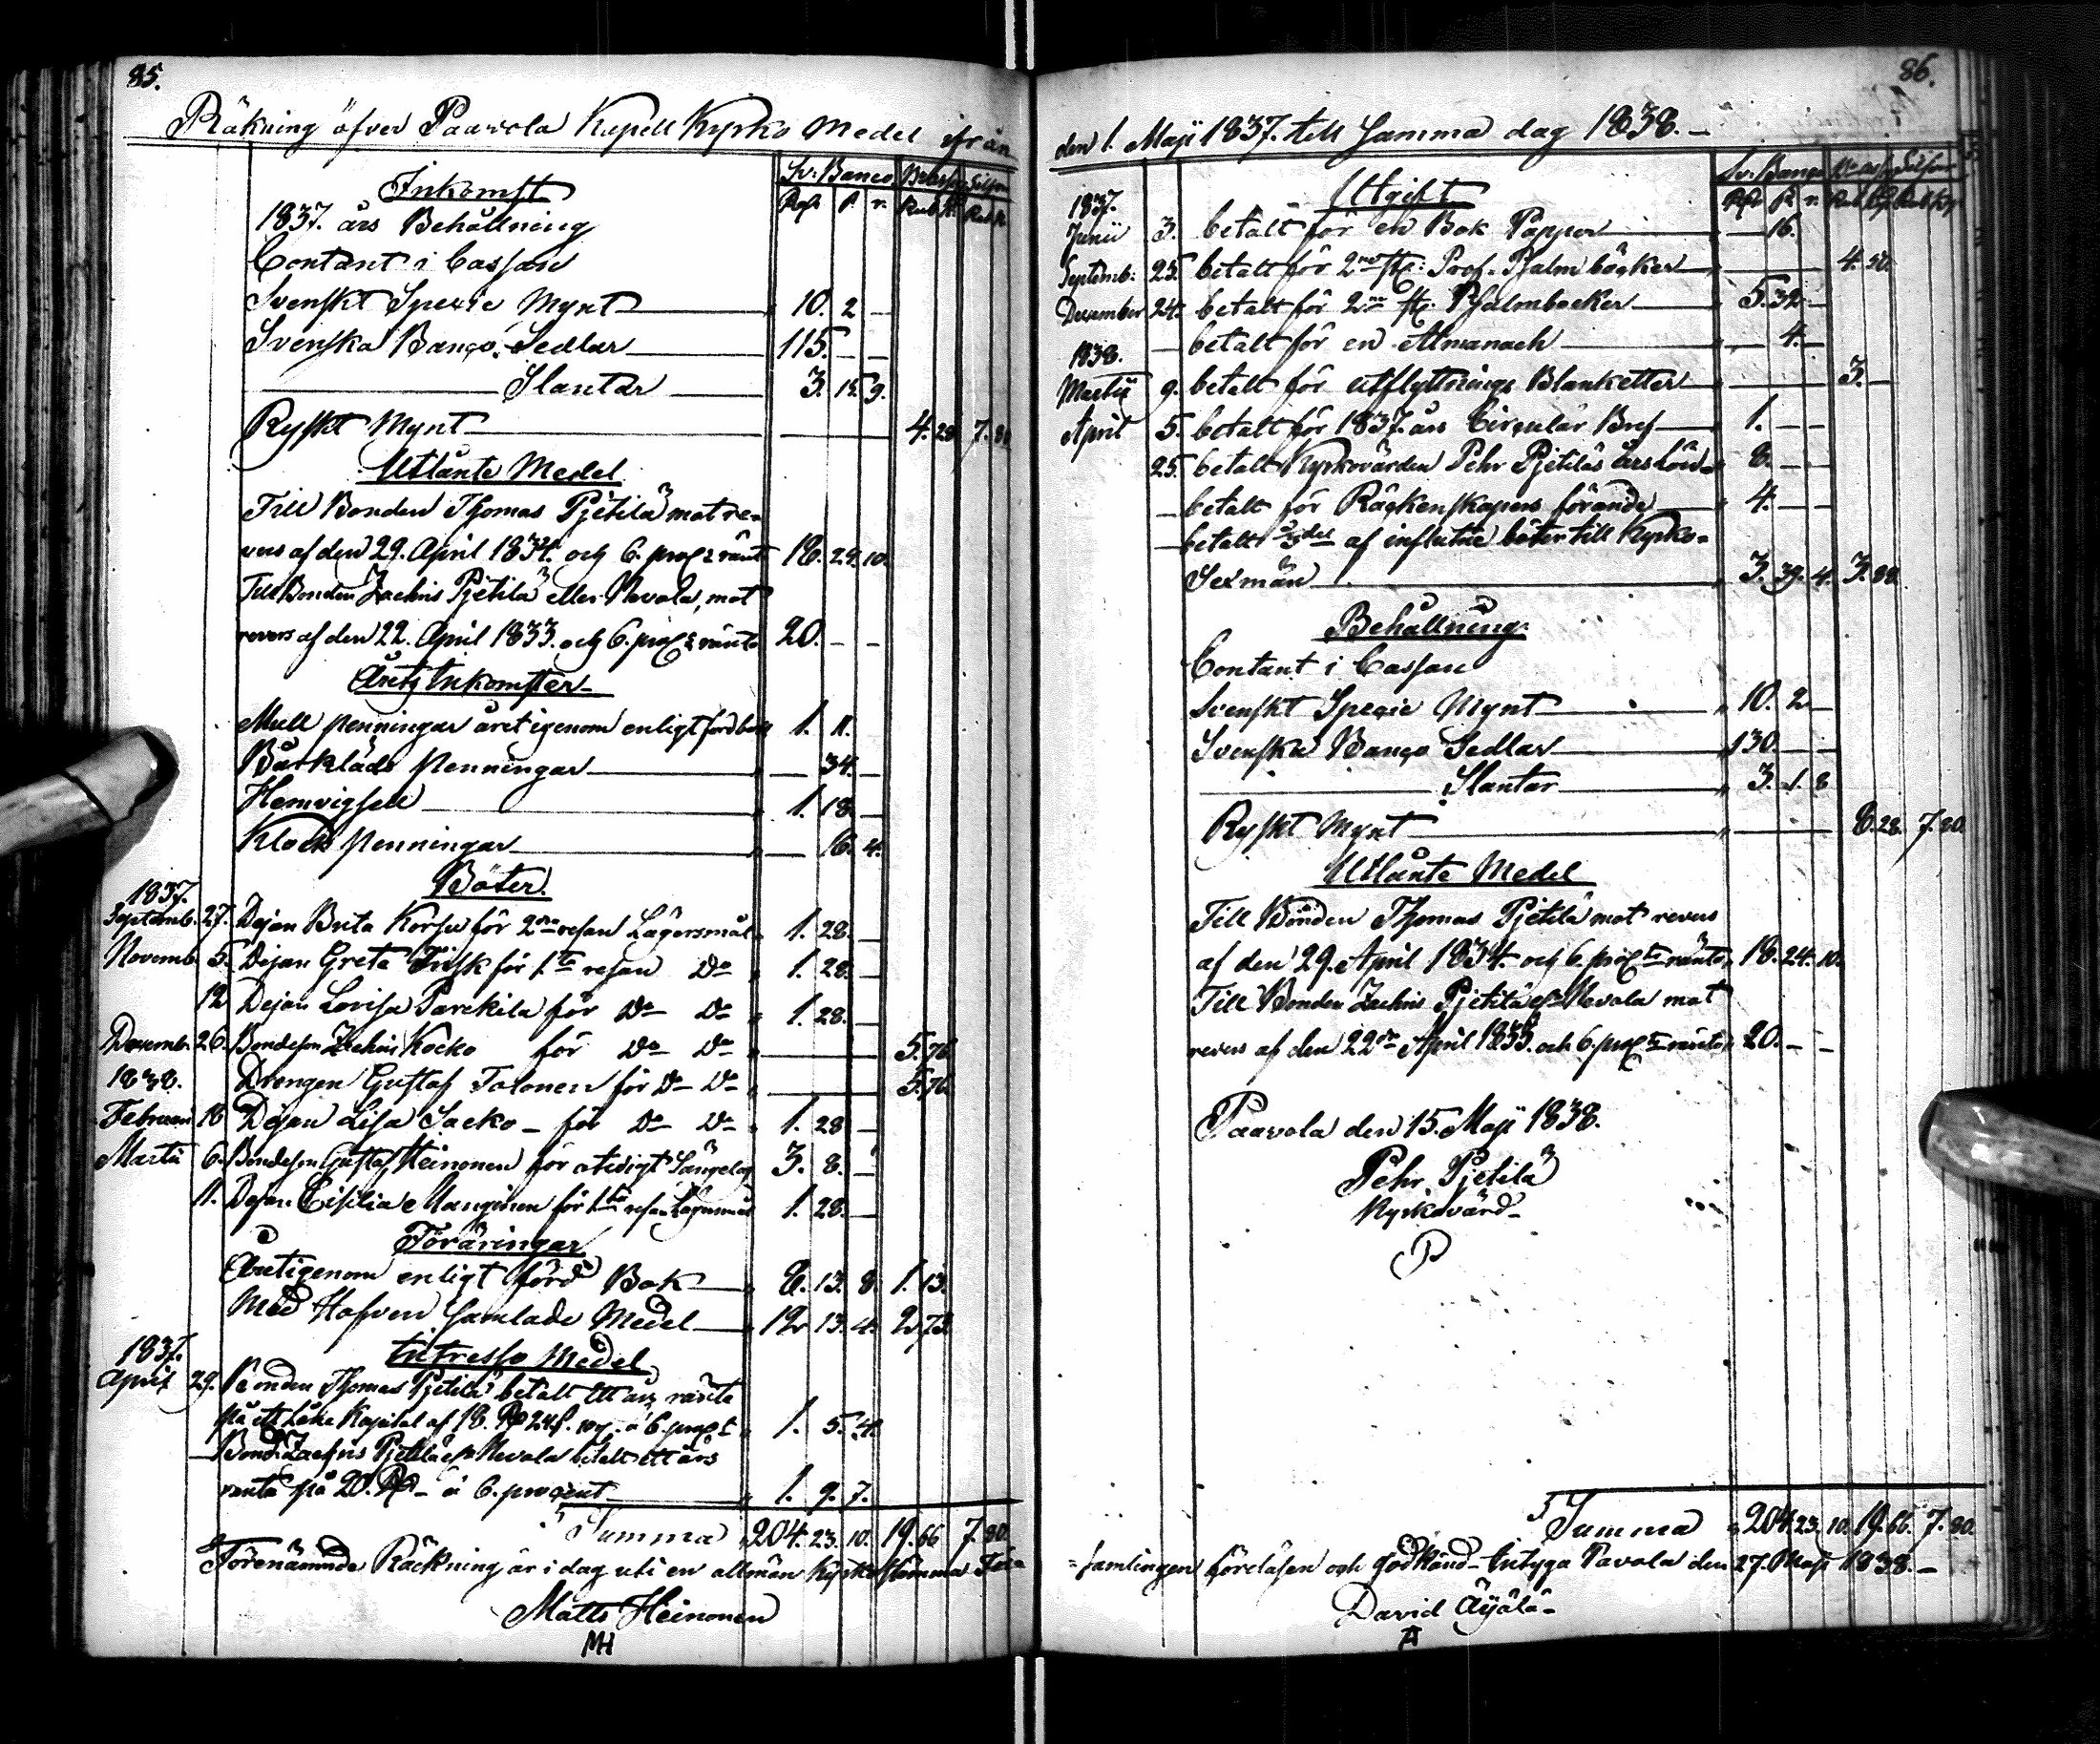 85.
Räkning öfver Paavola Kapell Kyrko Medel ifrån
Sv: Banco
Inkomst
1837. års Behållning
Contant i Cassan
Svenskt Specie Mynt 10. 2 –
Svenska Banco Sedlar 115. – –
Slantar 3. 15. 9.
Ryskt Mynt 4. 28 7. 80
Utlånte Medel
Till Bonden Thomas Pjetilä mot re-
vers af den 29. April 1834. och 6. proc: ränt 18. 24. 10.
Till Bonden Zachris Pjetilä eller Nevala, mot
revers af den 22. April 1833. och 6. proc: ränt 20. – –
Årets Inkomster
Mull penningar året igenom enligt förd bok 1. 11.
Bårkläds penningar – 34. –
Hemvigsel 1. 18 –
Klock penningar – 16. 4.
Böter.
1837.
Septemb. 27. Dejan Brita Korsu för 2dra resan Lägersmål 1. 28. –
Novemb. 5. Dejan Greta Frisk för 1sta resan Do 1. 28. –
12 Dejan Lovisa Parckila för Do Do 1. 28. –
Decemb. 26. Bondeson Zachris Kocko för Do Do 5. 76
1838. Drengen Gustaf Talonen för Do Do 5. 76
Februari 18 Dejan Lisa Sacko – för Do Do 1. 28 –
Martii 6. Bondeson Gustaf Heinonen för otidigt Sängelag 3. 8. –
11. Dejan Cisilia Manginen för 1sta resan Lägersmål 1. 28. –
Föräringar
Åretigenom enligt förd Bok 8. 13. 8. 1. 13.
Med Hafven Samlade Medel 12 13. 4. 2. 73
1837. Intresse Medel
April 29. Bonden Thomas Pjetilä betalt ett års ränta
på ett Låne Kapital af 18. Rd 24 s. 10 r. à 6. proct 1. 5. 4.
– Bond. Zachris Pjetilä el. Nevala betalt ett års
ränta på 20. Rd – à 6. procent 1. 9. 7.
Summa 204. 23. 10. 19. 66 7. 80.
Förenämnde Räckning är i dag uti en allmän Kyrko stämma För=
Matts Heinonen
MH
86.
den 1. Maji 1837. till Samma dag 1838. –
Sv: Banco
Utgift
1837.
Junii 3. betalt för en Bok Papper – 16.
Septemb: 25. betalt för 2ne st: Prof. Psalm böcker 4. 50.
December 24. betalt för 2ne st: Psalmboecker 5. 32 –
– betalt för en Almanach – 4. –
1838.
Martii 9. betalt för utflyttnings Blanketter 3. –
April 5. betalt för 1837. års Circulär Bref 1. – –
25. betalt Kyrkovärden Pehr Pjetiläs årslön 8. – –
– betalt för Räckenskapens förande 4. – –
– betalt af influtne böter till Kyrko=
Sexmän 3. 39. 4. 3. 88.
Behållning:
Contant i Cassan
Svenskt Specie Mynt 10. 2 –
Svenska Banco Sedlar 130. – –
Slantar 3. 1. 8
Ryskt Mynt 8. 28. 7. 80.
Utlånte Medel
Till Bonden Thomas Pjetilä mot revers
af den 29. April 1834. och 6. proct ränta 18. 24. 10.
Till Bonden Zachris Pjetilä el. Nevala mot
revers af den 22dra April 1833. och 6. proct ränta 20. – –
Paavola den 15. Maji 1838.
Pehr Pjetilä
Kyrkovärd –
P
Summa 204. 23. 10. 19. 66. 7. 80.
=samlingen föreläsen och godkänd – Intyga Pavola den 27. Maji 1838. –
David Äyälä –